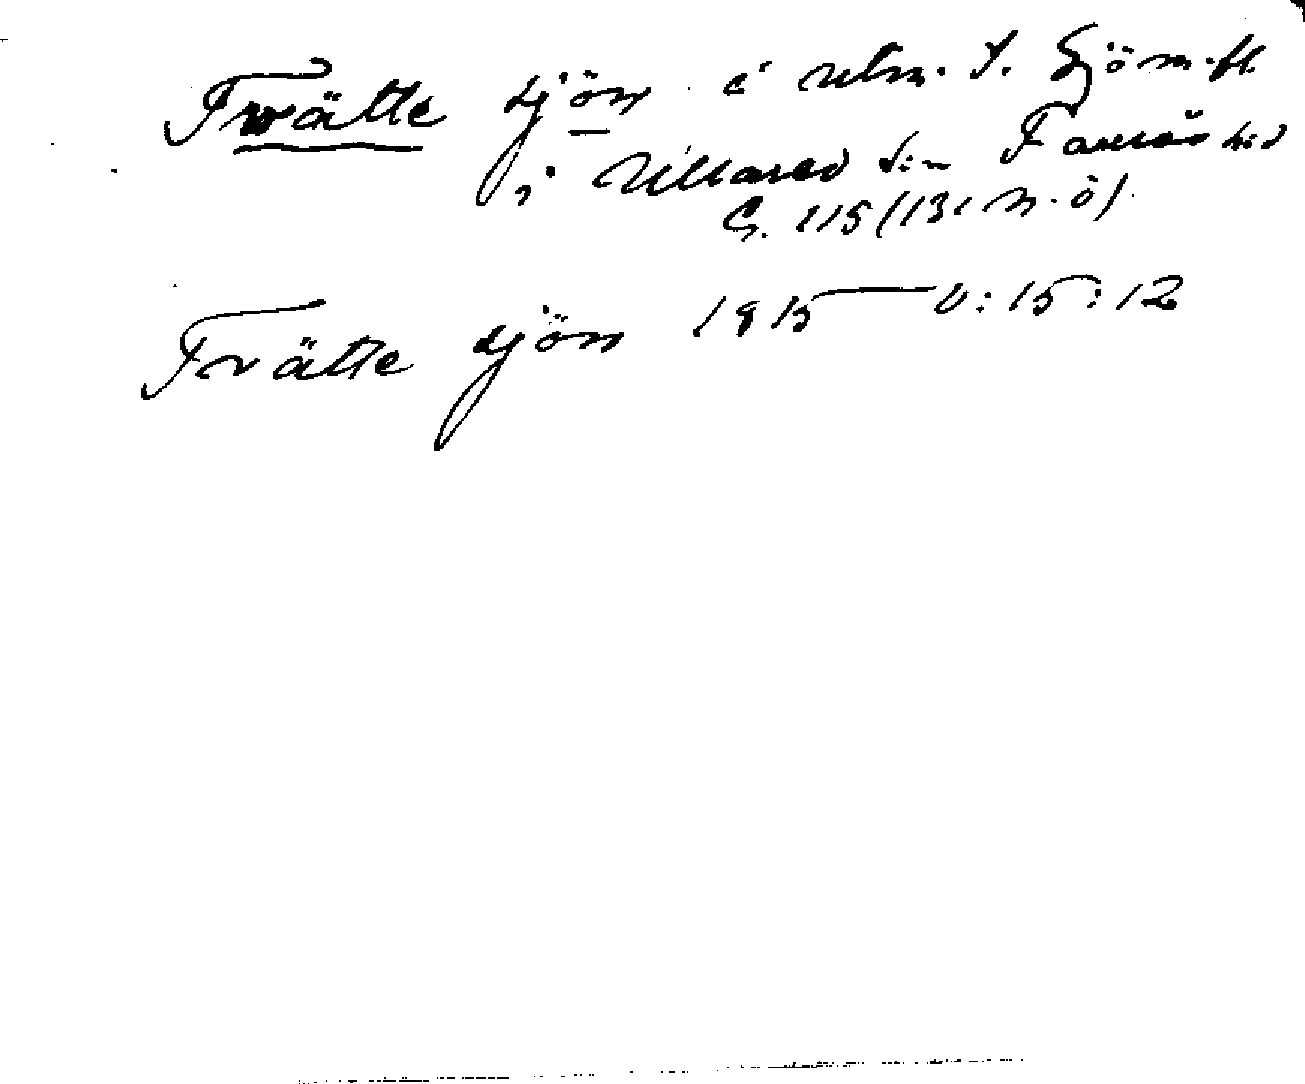 Twätte sjön i utm. t. Sjöm.fl.
i Ullared s:n Faurås hd
G. 115 (131 n.ö)
Tvätte sjön 1915 U:15:12